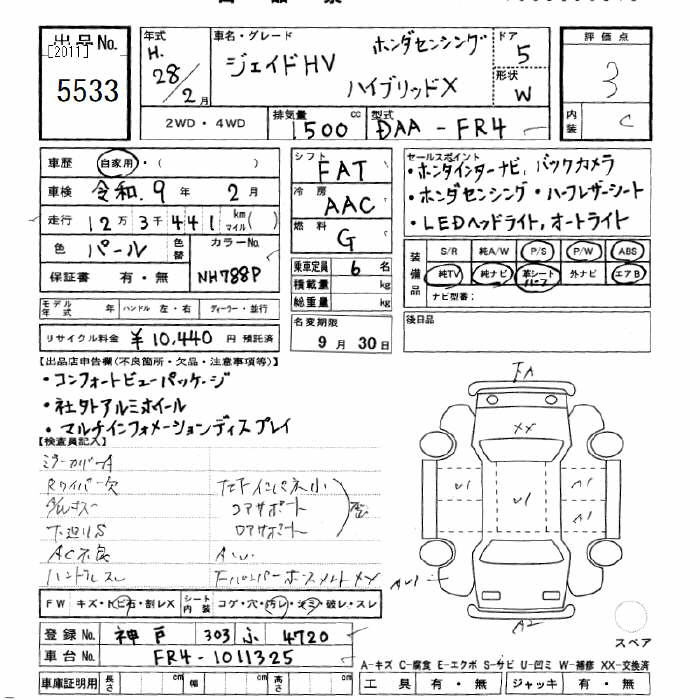 出品No.
[2011]
5533
年式
H.
28/2月
車名・グレード
ホンダセンシング
ジェイドHV
ハイブリッドX
ドア
5
形状
W
評価点
3
内装
C
2WD・4WD
排気量
1500cc
型式
DAA-FR4
車歴 自家用・( )
車検 令和.9年 2月
走行 12万3千441 km マイル( )
色 パール
色替
カラーNo.
NH788P
保証書 有・無
シフト FAT
冷房 AAC
燃料 G
乗車定員 6名
積載量 kg
総重量 kg
セールスポイント
・ホンダインターナビ, バックカメラ
・ホンダセンシング・ハーフレザーシート
・LEDヘッドライト, オートライト
装備品
S/R 純A/W P/S P/W ABS
純TV 純ナビ 革シート ハーフ 外ナビ エアB
ナビ型番:
モデル年式 年 ハンドル 左・右 ディーラー・並行
リサイクル料金 ¥10,440円 預託済
名変期限
9月30日
後日品
[出品店申告欄(不良箇所・欠品・注意事項等)]
・コンフォートビューパッケージ
・社外アルミホイール
・マルチインフォメーションディスプレイ
[検査員記入]
ミラーカバーA
Rワイパー欠
下廻りS
AC不良
コアサポート
FW キズ・トビ石・割レX
シート内装 コゲ・穴・汚レ・シミ・破レ・スレ
登録No. 神戸 303 ふ 4720
車台No. FR4-1011325
車庫証明用 長さ cm 幅 cm 高さ cm
XX
U1
U1
A1
A1
A2
スペア
A-キズ C-腐食 E-エクボ S-サビ U-凹ミ W-補修 XX-交換済
工具 有・無 ジャッキ 有・無